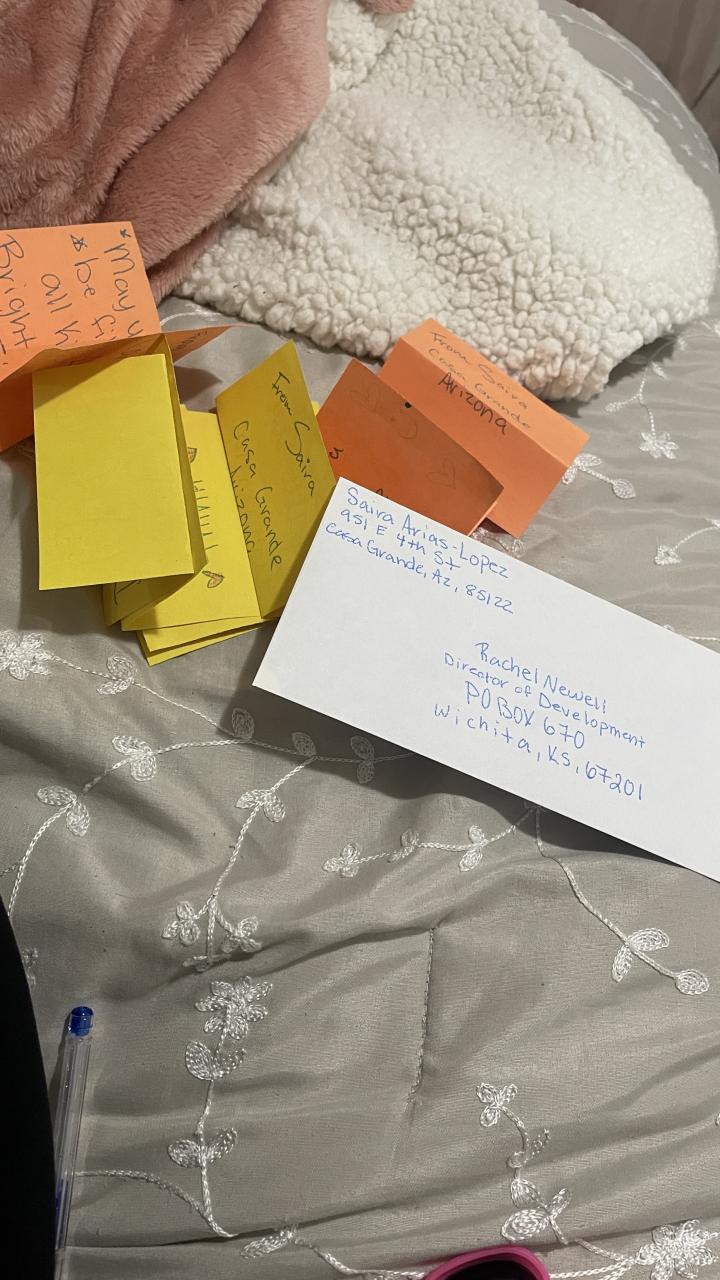 *May
*be fi
all
Bright
From Saira
Casa Grande
Arizona
From Saira
Casa Grande
Arizona
Saira Arias-Lopez
951 E 4th St
Casa Grande, Az, 85122
Rachel Newell
Director of Development
PO BOX 670
Wichita, KS, 67201